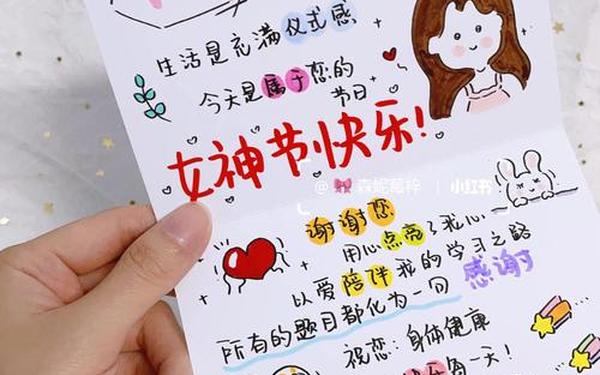 生活是充满仪式感
今天是属于您的
节日
女神节快乐!
@森妮莓梓 小红书
谢谢您
用心点亮了我心
以爱陪伴我的学习之路
感谢
所有的题目都化为一句
祝您:身体健康
每一天!